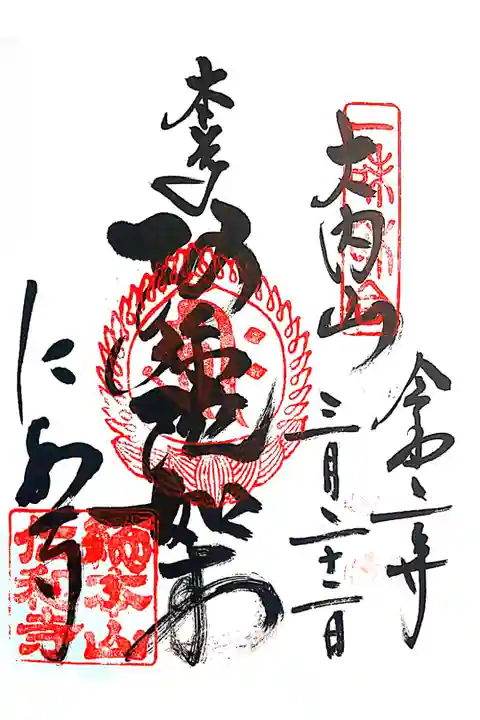 大内山
令和二年
三月二十二日
本尊
阿弥陀如来
仁和寺
総本山
仁和寺